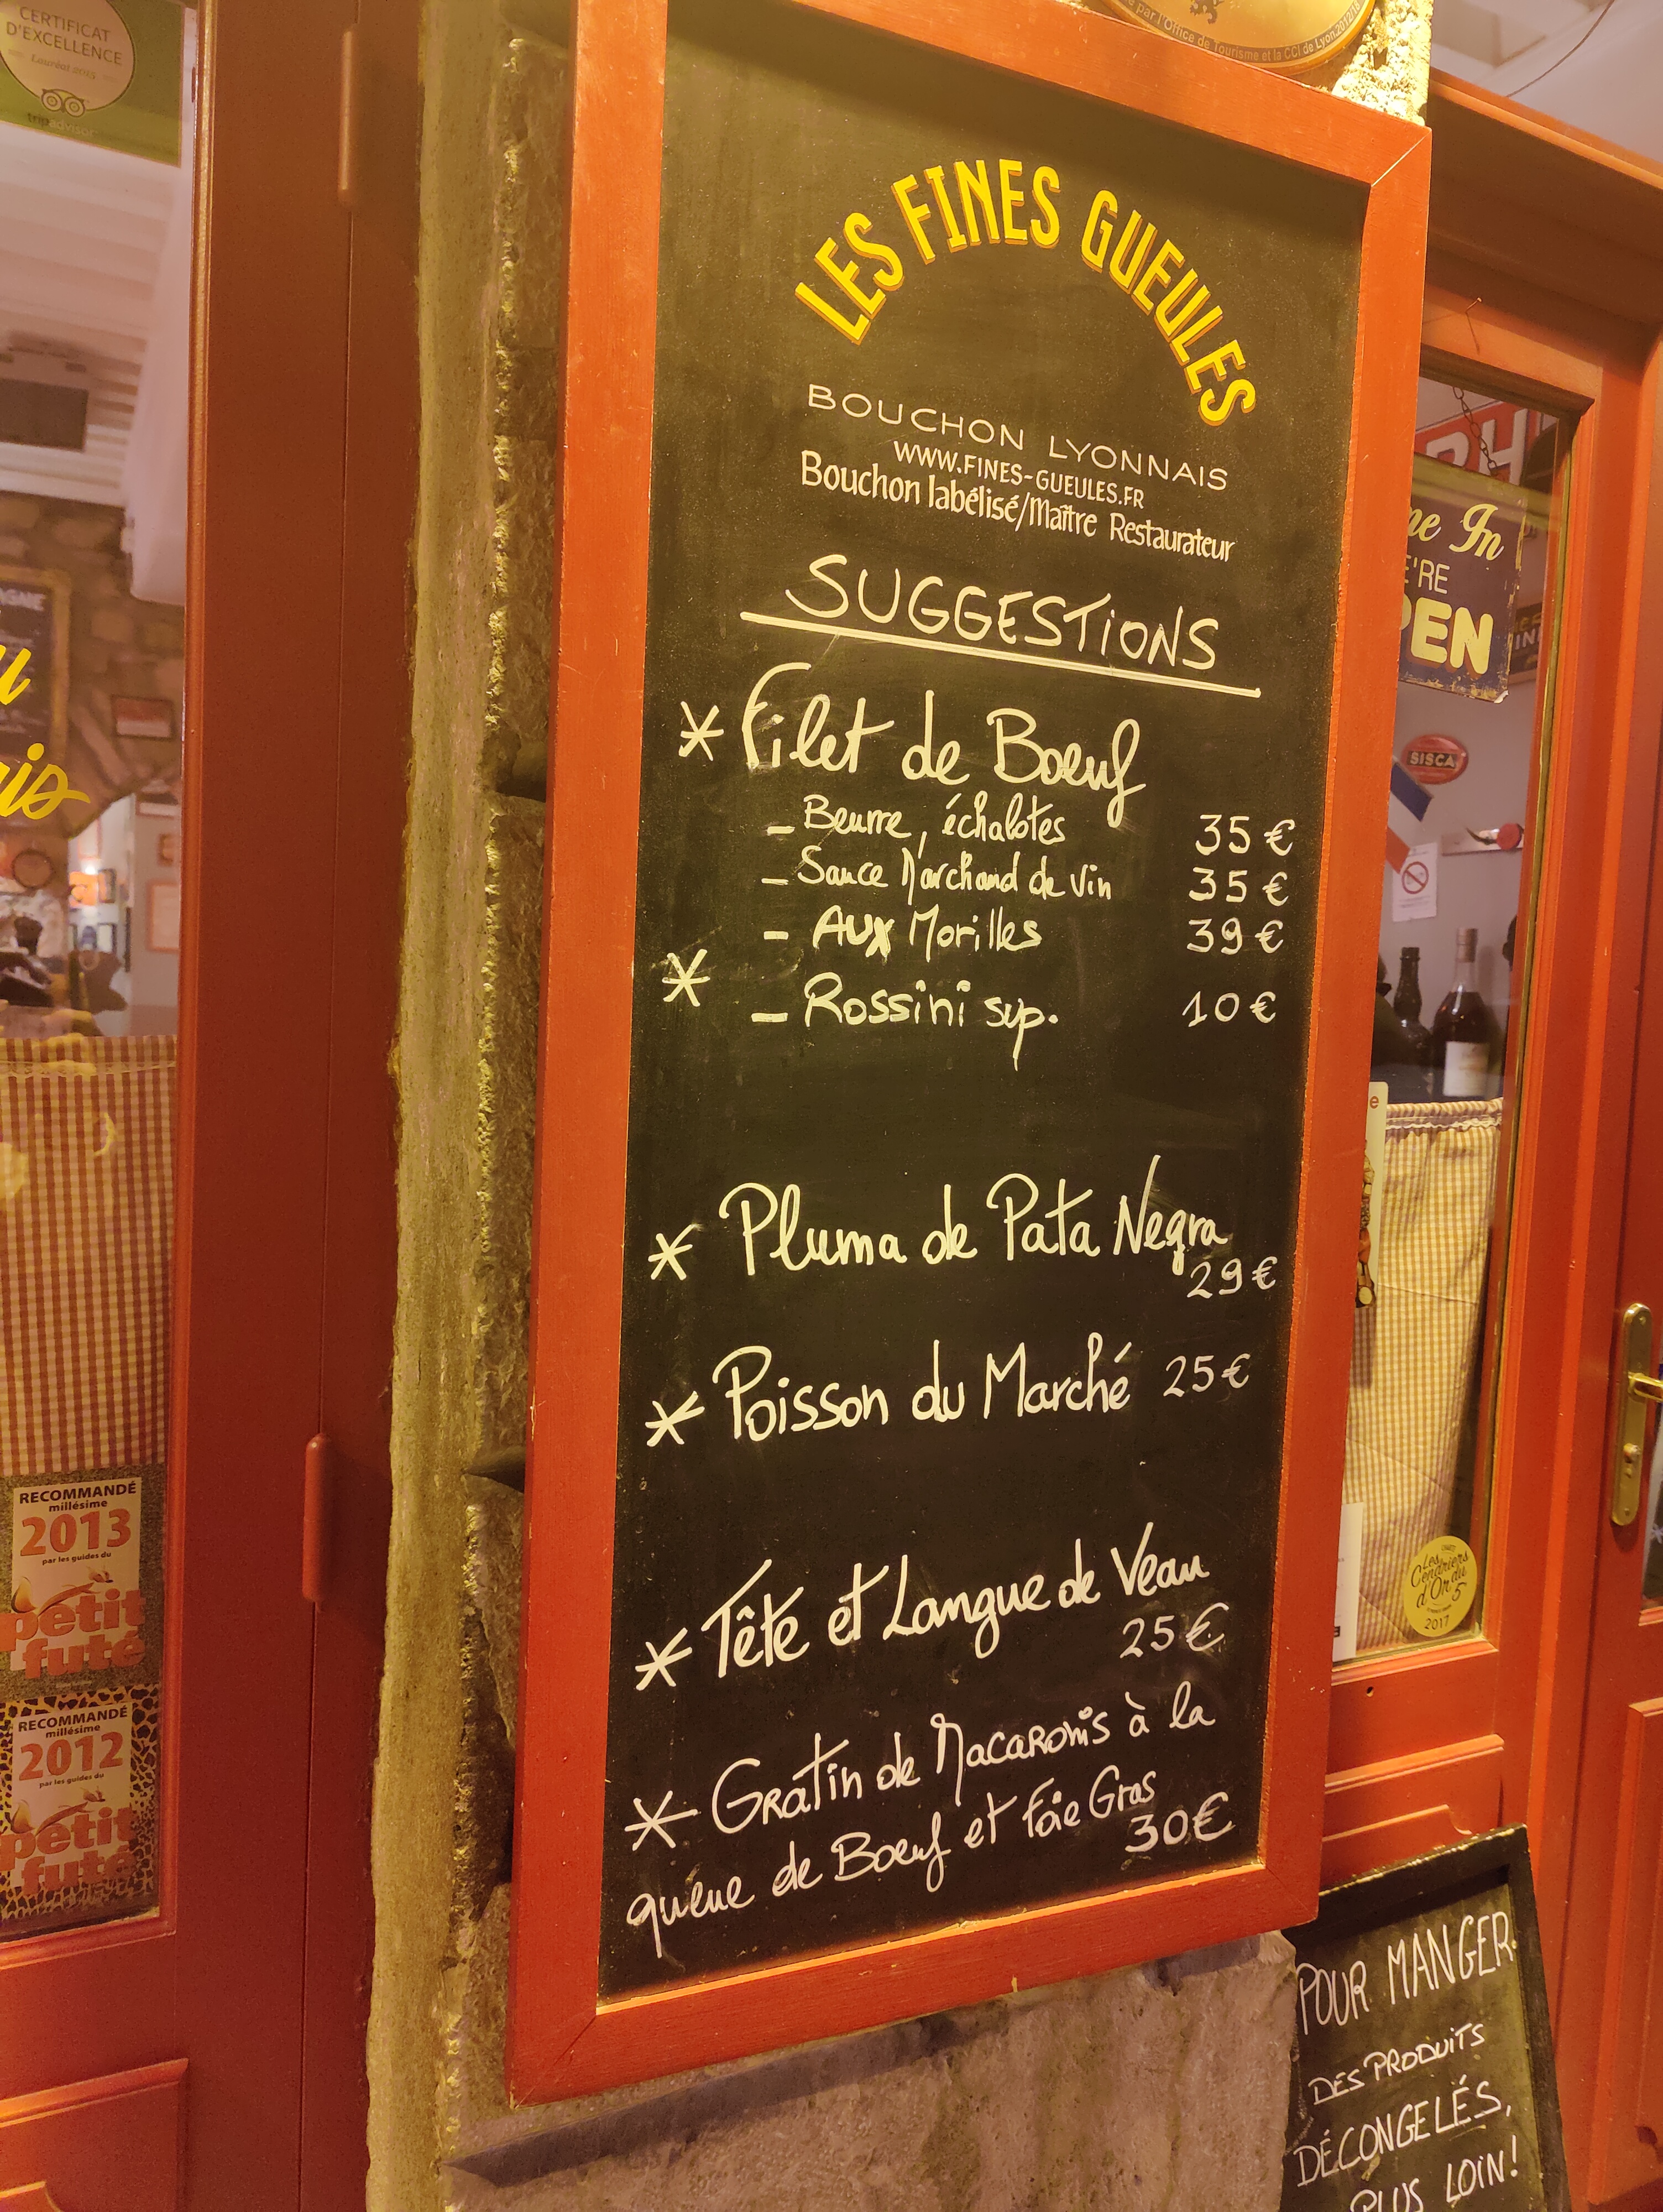 CERTIFICAT
D'EXCELLENCE
Lauréat 2015
tripadvisor
par l'Office de Tourisme et la CCI de Lyon
LES FINES GUEULES
BOUCHON LYONNAIS
WWW.FINES-GUEULES.FR
Bouchon labélisé/Maître Restaurateur
SUGGESTIONS
* Filet de Boeuf
- Beurre, échalotes 35 €
- Sauce Marchand de Vin 35 €
- Aux Morilles 39 €
* - Rossini sup. 10 €
* Pluma de Pata Negra
29 €
* Poisson du Marché 25 €
* Tête et Langue de Veau
25 €
* Gratin de Macaronis à la
queue de Boeuf et Foie Gras
30 €
In
'RE
PEN
SISCA
RECOMMANDÉ
millésime
2013
par les guides du
petit
futé
RECOMMANDÉ
millésime
2012
par les guides du
petit
futé
Les
Cendriers
d'Or du
5
2017
POUR MANGER
DES PRODUITS
DÉCONGELÉS,
PLUS LOIN!